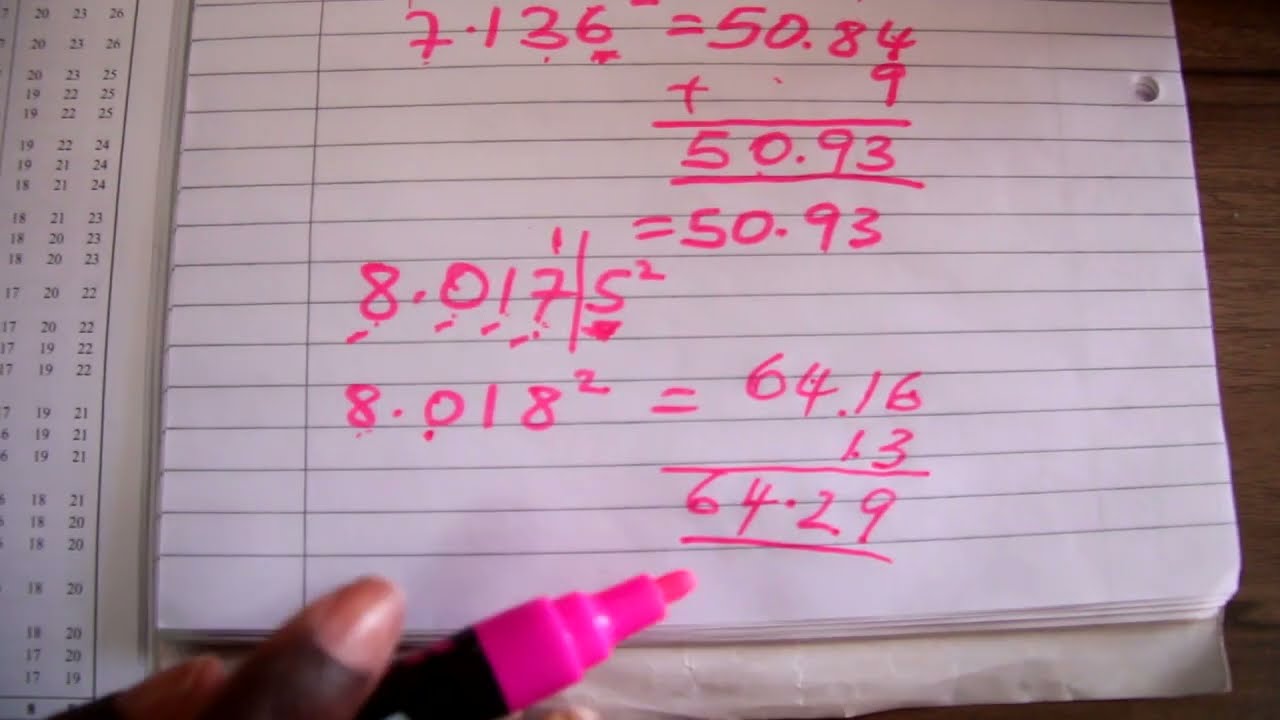 7.136² = 50.84
+ 9
50.93
= 50.93
1
8.017|5²
8.018² = 64.16
13
64.29
17 20 23 26
20 23 26
20 23 25
19 22 25
19 22 25
19 22 24
19 21 24
18 21 24
18 21 23
18 20 23
18 20 23
17 20 22
17 20 22
17 19 22
17 19 22
19 21
19 21
19 21
18 21
18 20
18 20
18 20
18 20
17 20
17 19
8